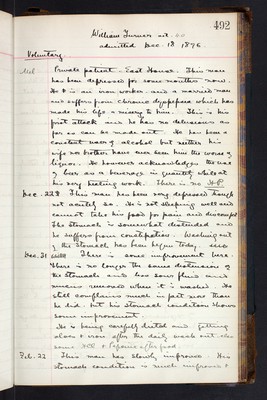 492
William Turner aet. 60
admitted Dec. 18 1896
Voluntary.
Private patient - East House. This man
has been depressed for some months now.
He is an iron worker and a married man
and suffers from chronic dyspepsia which has
made his life a misery to him. This is his
first attack and he has no delusions as
far as can be made out. He has been a
constant user of alcohol but neither his
wife nor brother have ever seen him the worse of
liquor. He however acknowledges the use
of beer as a beverage in quantity whilst at
his very heating work. There is no H.P.
Dec. 22 This man has been very depressed though
not acutely so. He is not sleeping well and
cannot take his food for pain and discomfort
The stomach is somewhat distended and
he suffers from constipation. Washing out
of the stomach has been begun today.
Dec. 31 There is some improvement here.
There is no longer the same distension of
the stomach and less sour fluid and
remains removed when it is washed. He
still complains much in just now than
he did but his stomach condition shows
some improvement.
He is being carefully dieted and getting
aloes & iron after the daily wash out also
some HCl & Pepsin after food
Feb. 22 This man has slowly improved. His
stomach condition is much improved &